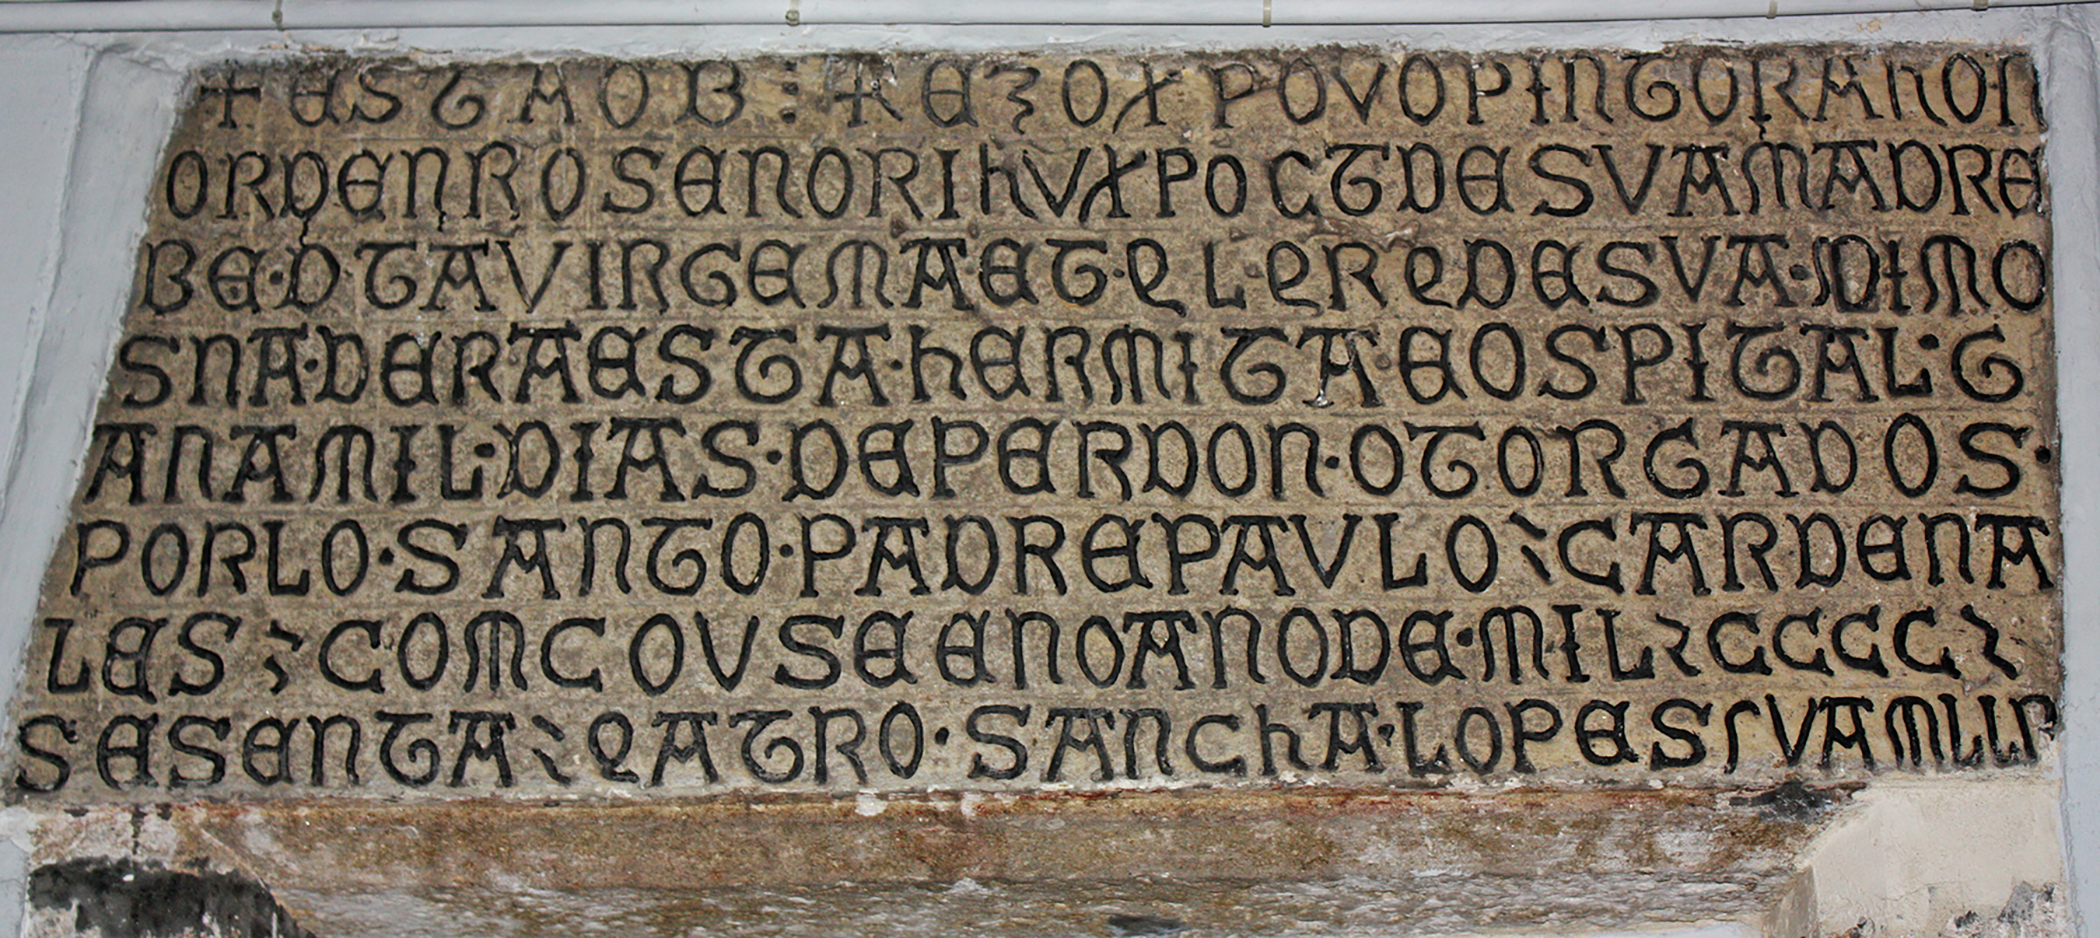 + ESTAOB : + EZOXPOVOPINTORANOI
ORDENROSENORIhVXPOCTDESVAMADRE
BE·DTAVIRGEMA·ET·QL·QRQDESVA·DIMO
SNA·DERAESTA·hERMITAEOSPITAL·G
ANAMIL·DIAS·DEPERDON·OTORGADOS·
PORLO·SANTO·PADREPAVLO:CARDENA
LES:COMCOVSEENOANODE·MIL:CCCC:
SESENTA:QATRO·SANChA·LOPESSVAMLLR